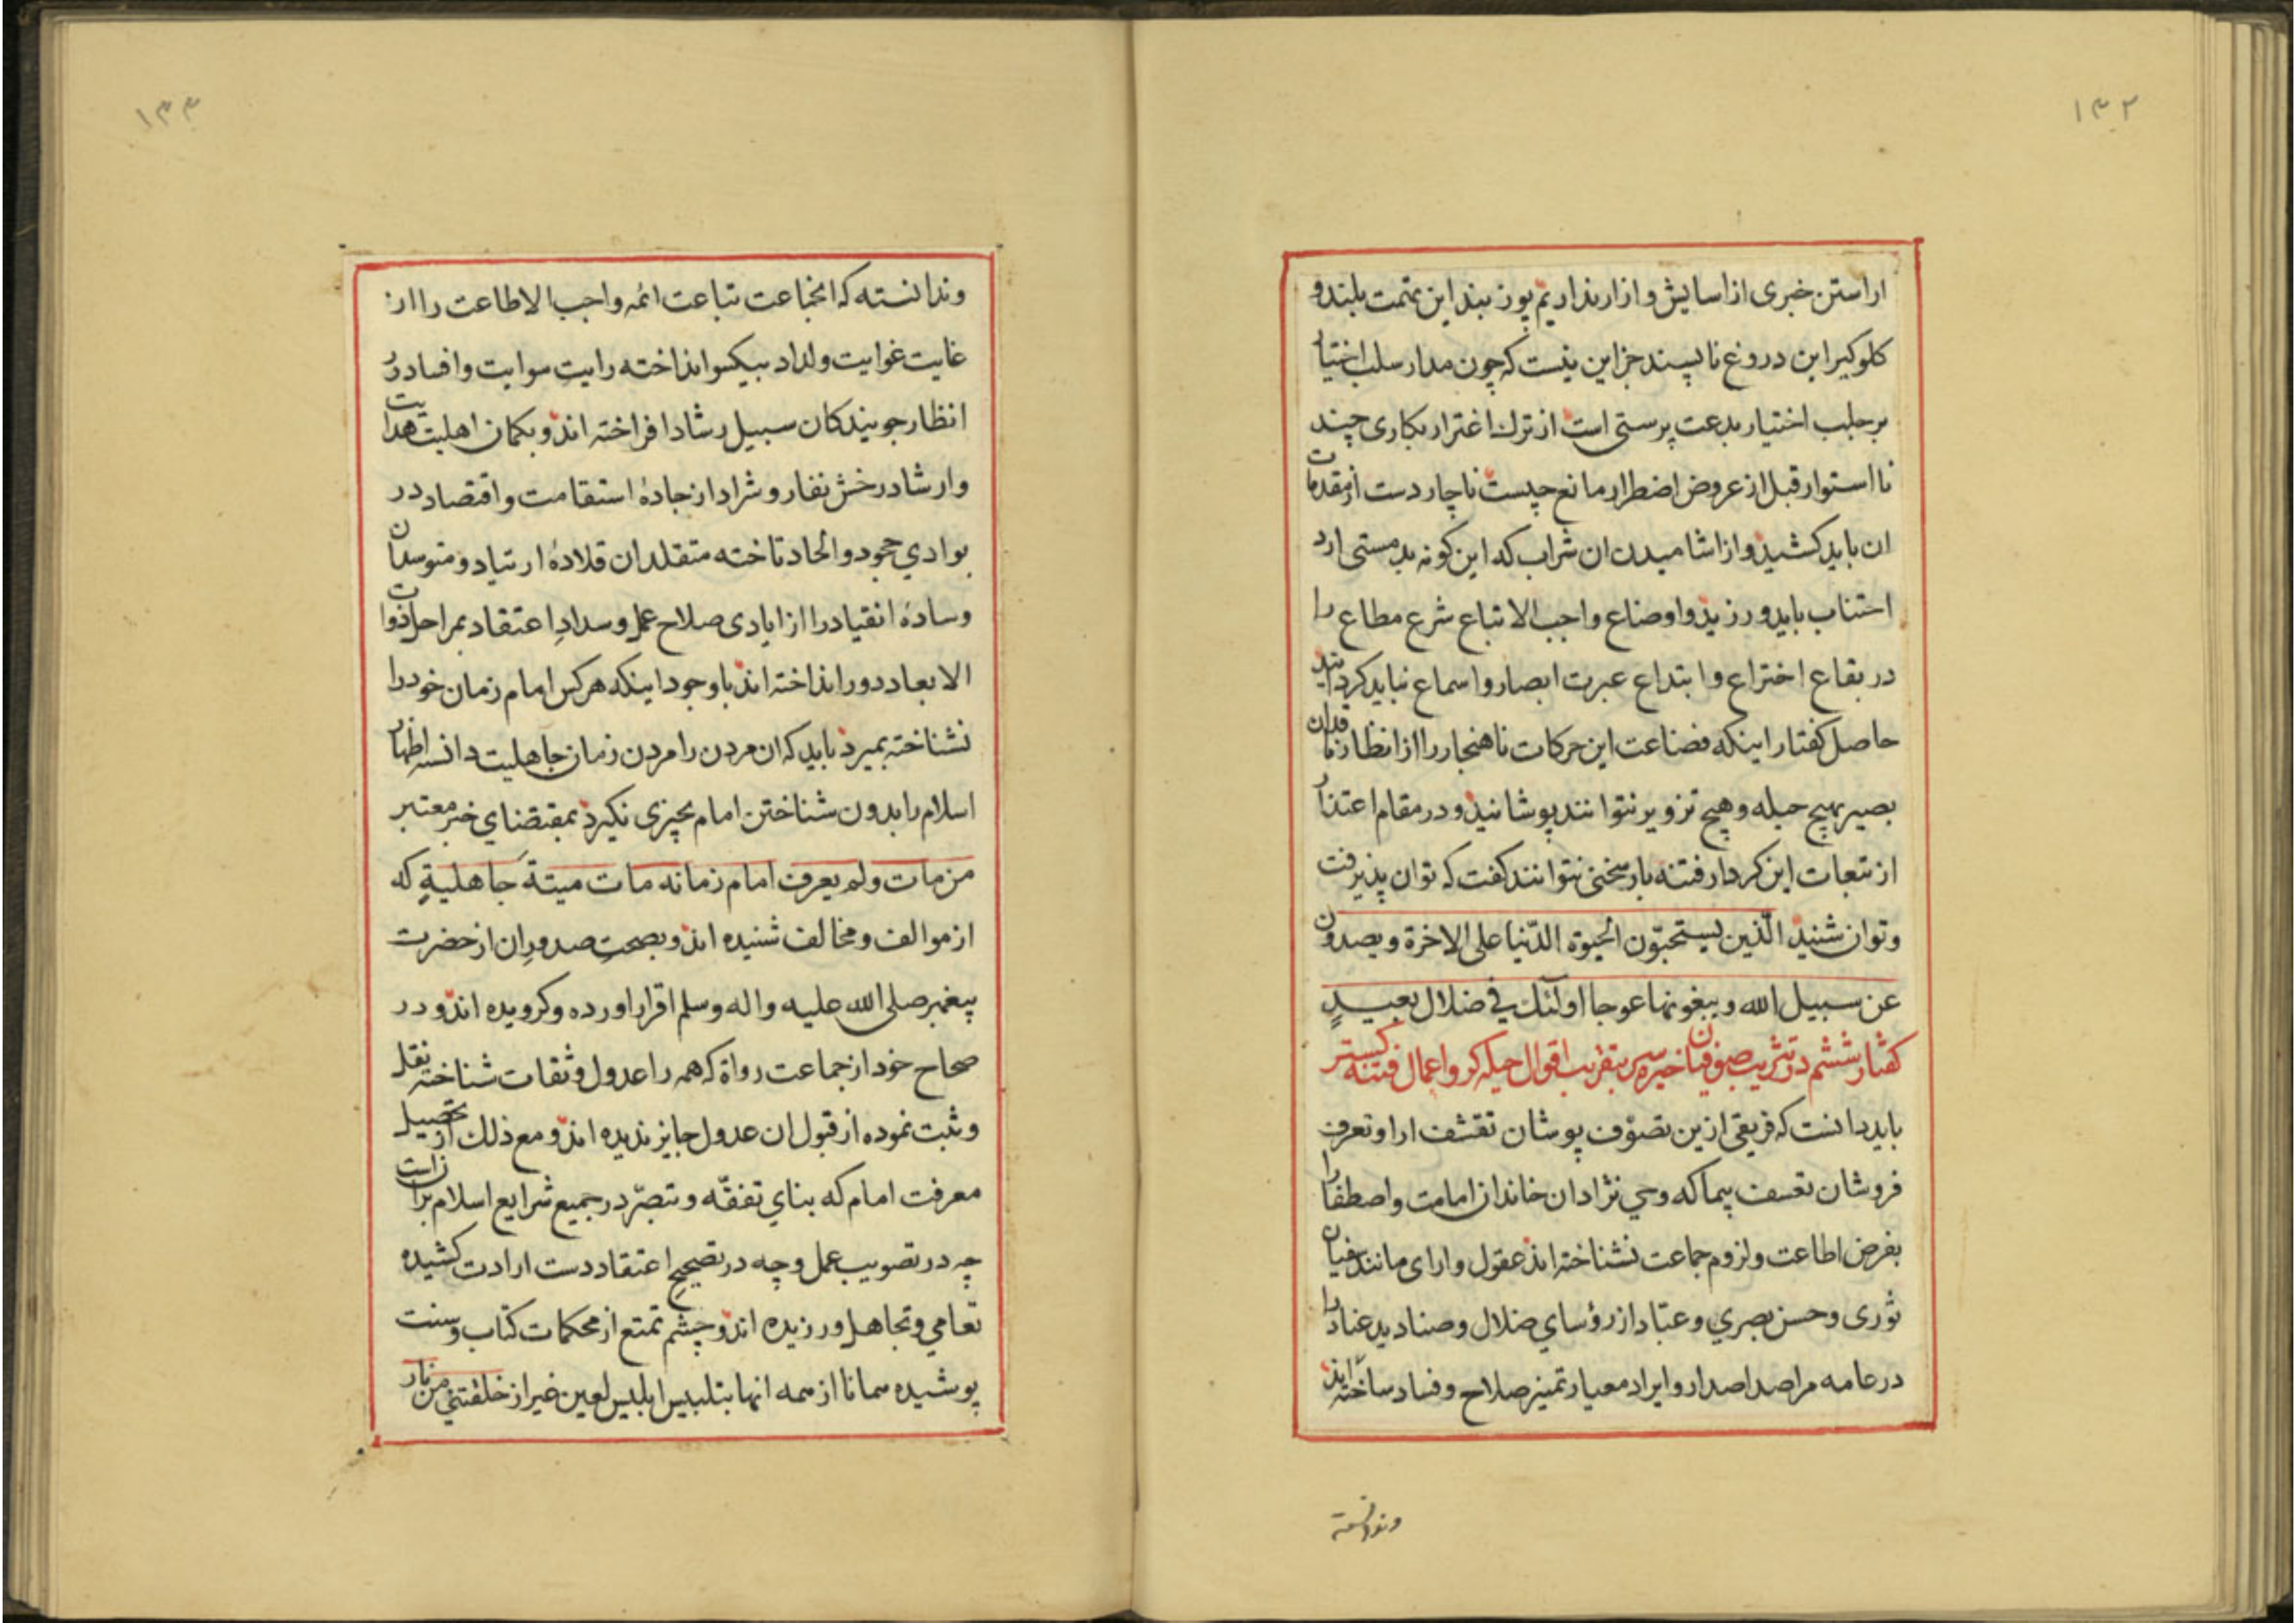 ۱۳۲
اراستن خبری از اسایش و ازار نداریم پوزبند این تهمت بلند و
کلوکیر این دروغ ناپسند جز این نیست که چون مدار سلب اختیار
بر جلب اختیار بدعت پرستی است از ترک اغترار بکاری چند
نااستوار قبل از عروض اضطرار مانع چیست ناچار دست از مقدمات
ان باید کشید و از اشامیدن ان شراب که این کونه بد مستی ارد
اجتناب باید ورزید و اوضاع واجب الاتباع شرع مطاع را
در بقاع اختراع و ابتداع عبرت ابصار و اسماع نباید کردانید
حاصل کفتار اینکه فضاعت این حرکات ناهنجار را از انظار ناقدان
بصیر بهیچ حیله و هیچ تزویر نتوانند پوشانید و در مقام اعتذار
از تبعات این کردار فتنه بار سخنی نتوانند کفت که توان پذیرفت
و توان شنید الّذین یستحبّون الحیوة الدّنیا علی الاخرة و یصدون
عن سبیل الله و یبغونها عوجا اولئک فی ضلال بعیدٍ
کفتار ششم در تثریب صوفیان خیره سر بتقریب اقوال حیله کر و اعمال فتنه کستر
باید دانست که فریقی ازین تصوّف پوشان تقشف ارا و تعرف
فروشان تعسف پیما که وحی نژادان خاندان امامت و اصطفا را
بفرض اطاعت و لزوم جماعت نشناخته اند عقول و ارای مانند سفیان
ثوری و حسن بصري و عباد از رؤسای ضلال و صنادید عناد را
در عامه مراصد اصدار و ایراد معیار تمیز صلاح و فساد ساخته اند
وندانسته
۱۳۳
وندانسته که انخباعت تباعت ائمه واجب الاطاعت را از
غایت غوایت و لداد بیکسو انداخته رایتِ سوایت و افساد در
انظار جویندکان سبیل رشاد افراخته اند و بکمان اهلیت هدایت
و ارشاد رخش نفار و شراد از جادهٔ استقامت و اقتصاد در
بوادي جحود و الحاد تاخته متقلدان قلادهٔ ارتیاد و متوسدان
وسادهٔ انقیاد را از ایادی صلاح عمل و سدادِ اعتقاد بمراحل ذوات
الابعاد دور انداخته اند باوجود اینکه هر کس امام زمان خود را
نشناخته بمیرد باید که ان مردن را مردن زمان جاهلیت دانسته اظهار
اسلام را بدون شناختن امام بچیزی نکیرد بمقتضاي خبر معتبر
من مات ولم یعرف امام زمانه مات میتة جاهلیةٍ که
از موالف و مخالف شنیده اند و بصحتِ صدورِ ان از حضرت
پیغمبر صلی الله علیه و اله و سلم اقرار اورده و کرویده اند و در
صحاح خود از جماعت رواة که همه را عدول و ثقات شناخته نقل
و ثبت نموده از قبول ان عدول جایز ندیده اند و مع ذلک از تحصیل
معرفت امام که بناي تفقّه و تبصّر در جمیع شرایع اسلام بر ان است
چه در تصویب عمل و چه در تصحیحِ اعتقاد دست ارادت کشیده
تعامي و تجاهل ورزیده اند و چشم تمتع از محکمات کتاب و سنت
پوشیده سمانا از سمه انها بتلبیس ابلیس لعین غیر از خلقتني من نار